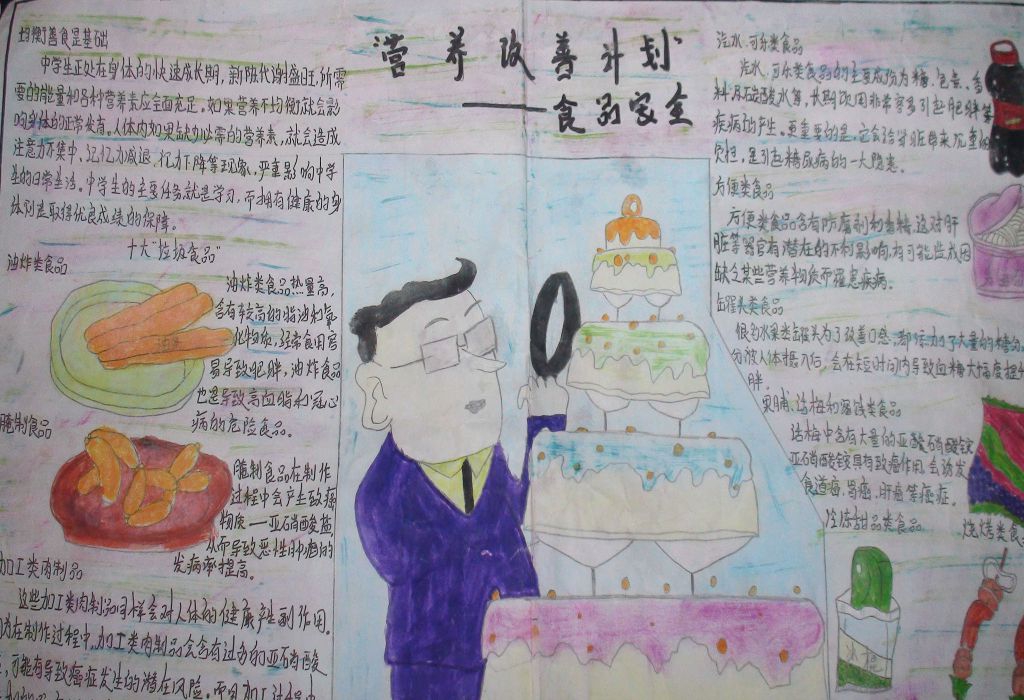 营养改善计划
——食品安全
均衡善食是基础
中学生正处在身体的快速成长期，新陈代谢盛旺，所需
要的能量和各种营养素应全面充足。如果营养不均衡就会影
响身体的正常发育。人体内如果缺少必需的营养素，就会造成
注意力不集中、记忆力减退、抗力下降等现象，严重影响中学
生的日常生活。中学生的主要任务就是学习，而拥有健康的身
体则是取得优良成绩的保障。
十大"垃圾食品"
油炸类食品
油炸类食品热量高，
含有较高的脂油和氧
化物质，经常食用容
易导致肥胖，油炸食品
也是导致高血脂和冠心
病的危险食品。
油条
腌制食品
腌制食品在制作
过程中会产生致癌
物质——亚硝酸盐，
从而导致恶性肿瘤的
发病率提高。
加工类肉制品
这些加工类肉制品同样会对人体的健康产生副作用。
在制作过程中，加工类肉制品会含有过多的亚硝酸
可能有导致癌症发生的潜在风险。
汽水、可乐类食品
汽水、可乐类食品的主要成份为糖、色素、香
料及碳酸水等，长期饮用非常容易引起肥胖等
疾病的产生。更重要的是，它会给肾脏带来沉重的
负担，是引起糖尿病的一大隐患。
方便类食品
方便类食品含有防腐剂和香精，这对肝
脏等器官有潜在的不利影响，有可能造成因
缺乏某些营养物质而罹患疾病。
罐头类食品
很多水果类罐头为了改善口感，都添加了大量的糖分，
分被人体摄入后，会在短时间内导致血糖大幅度提升
胖。
果脯、话梅和蜜饯类食品
话梅中含有大量的亚酸硝酸铵
亚硝酸铵具有致癌作用，会诱发
食道癌、胃癌、肝癌等癌症。
冷冻甜品类食品
烧烤类食
冰棍